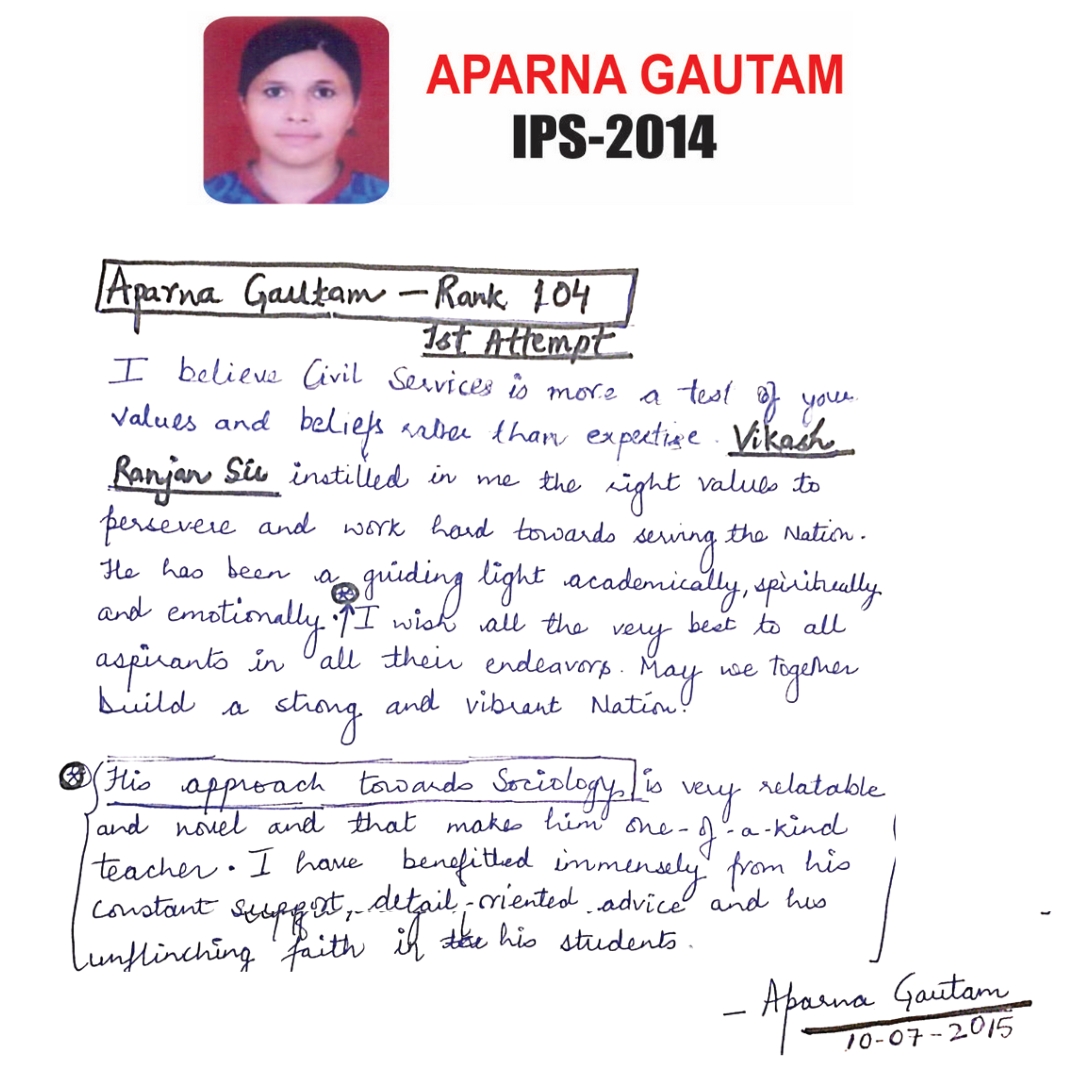 APARNA GAUTAM
IPS-2014
Aparna Gautam - Rank 104
1st Attempt
I believe Civil Services is more a test of your
values and beliefs rather than expertise. Vikash
Ranjan Sir instilled in me the right values to
persevere and work hard towards serving the Nation.
He has been a guiding light academically, spiritually
and emotionally. I wish all the very best to all
aspirants in all their endeavors. May we together
build a strong and vibrant Nation!
His approach towards Sociology is very relatable
and novel and that makes him one-of-a-kind
teacher. I have benefitted immensely from his
constant support, detail-oriented advice and his
unflinching faith in his students.
- Aparna Gautam
10-07-2015